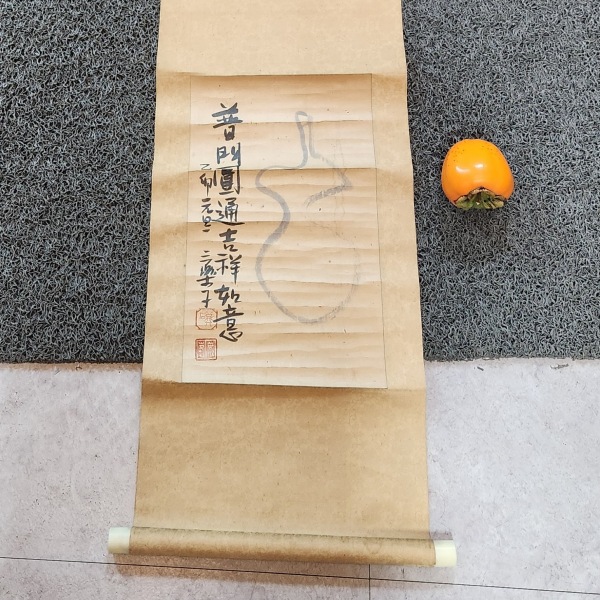 普門圓通吉祥如意
乙卯元旦 三樂子